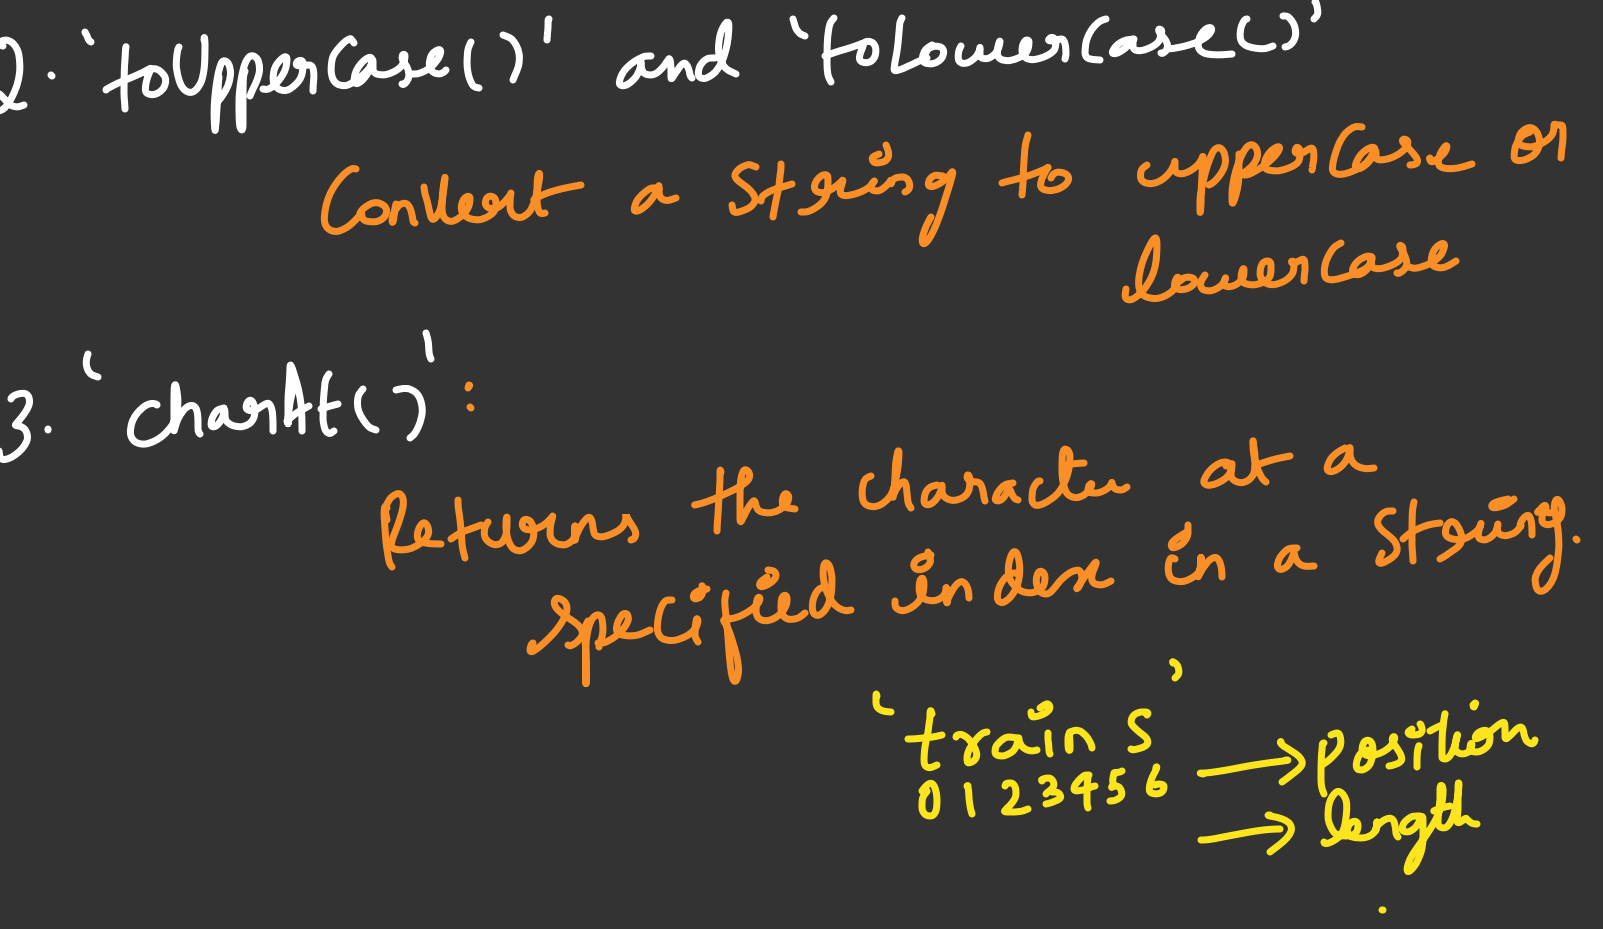 2. 'toUpperCase()' and 'toLowerCase()'
Convert a String to upperCase or
lowerCase
3. 'charAt()':
Returns the character at a
specified index in a String.
'trains'
0 1 2 3 4 5 6 → position
→ length